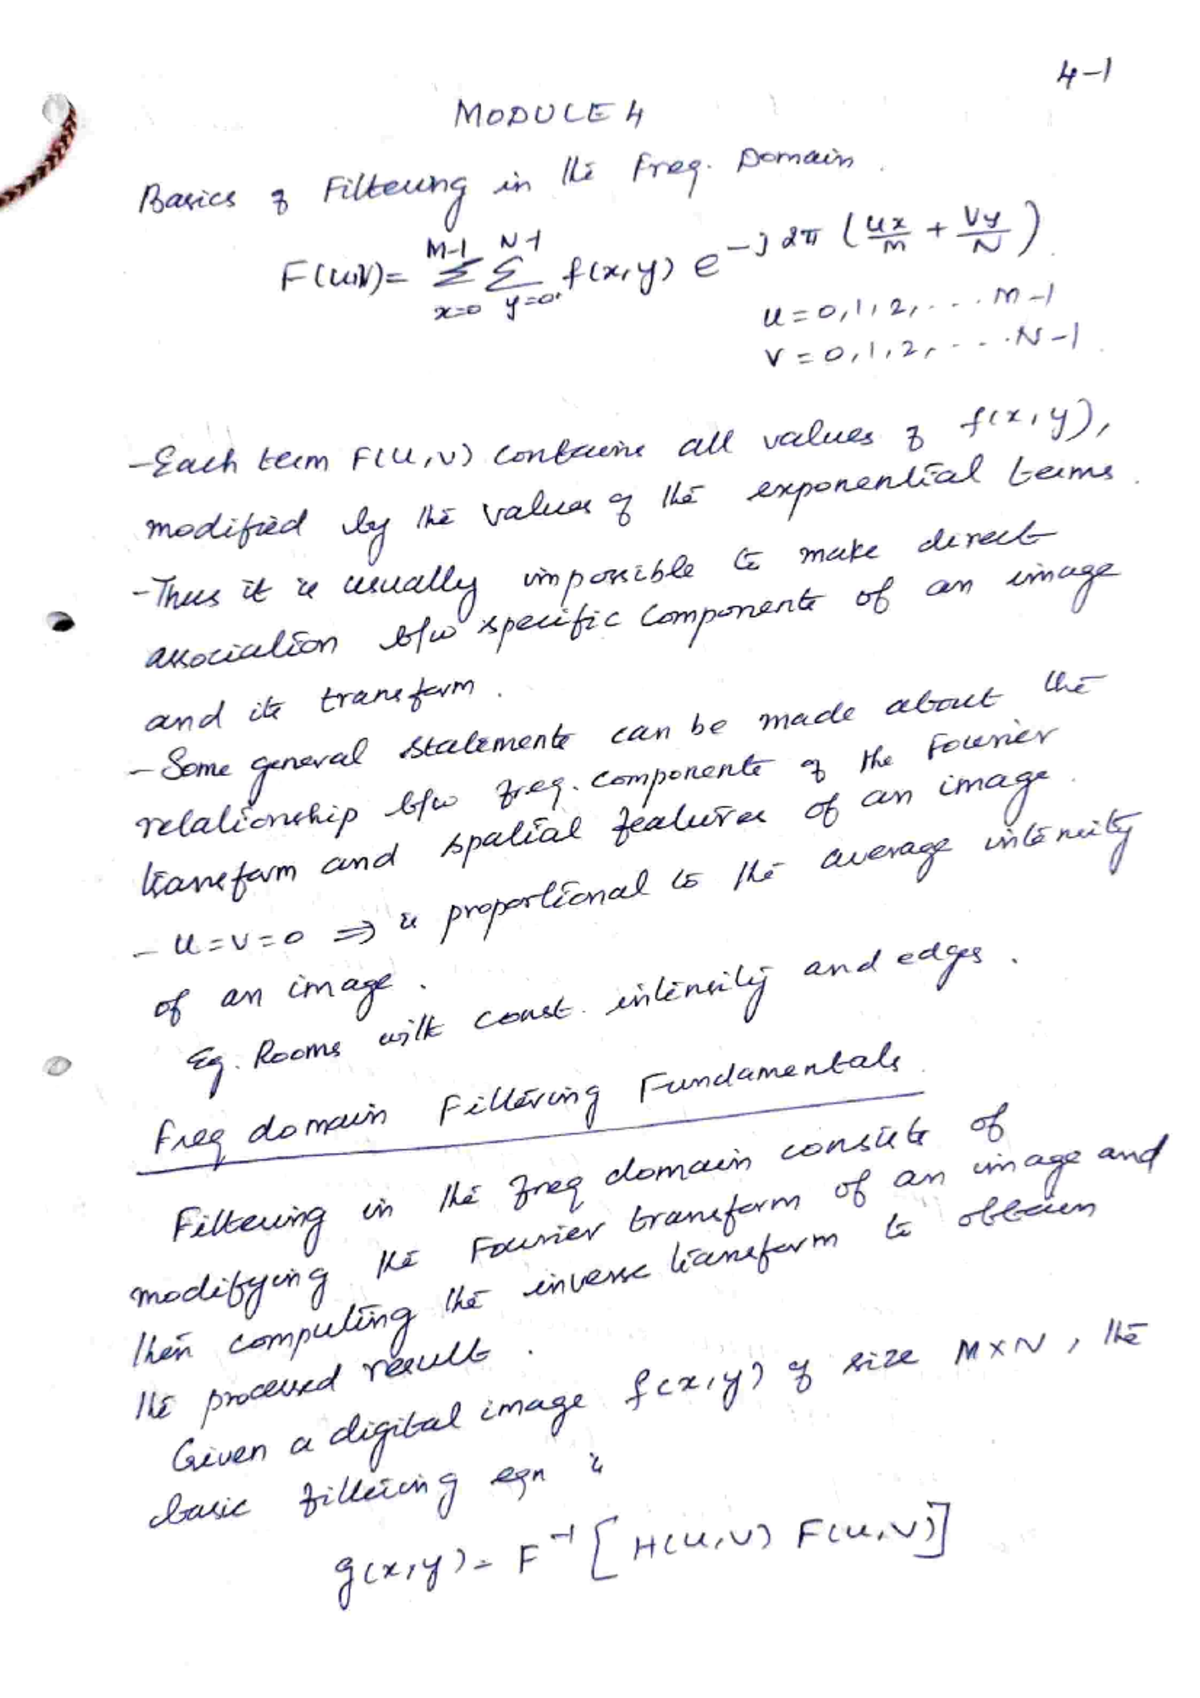 4-1
MODULE 4
Basics of Filtering in the Freq. Domain.
F(u,v)= M-1 Σ x=0 N-1 Σ y=0 f(x,y) e -j2π (ux/M + vy/N)
u=0,1,2,....M-1
v=0,1,2,....N-1.
-Each term F(u,v) contains all values of f(x,y),
modified by the values of the exponential terms.
-Thus it is usually impossible to make direct
association b/w specific components of an image
and its transform.
-Some general statements can be made about the
relationship b/w freq. components of the Fourier
transform and spatial features of an image.
- u=v=0 ⇒ is proportional to the average intensity
of an image.
Eg. Rooms with const. intensity and edges.
Freq domain Filtering Fundamentals.
Filtering in the freq domain consists of
modifying the Fourier transform of an image and
then computing the inverse transform to obtain
the processed result.
Given a digital image f(x,y) of size M×N, the
basic filtering eqn is
g(x,y)= F⁻¹ [H(u,v) F(u,v)]